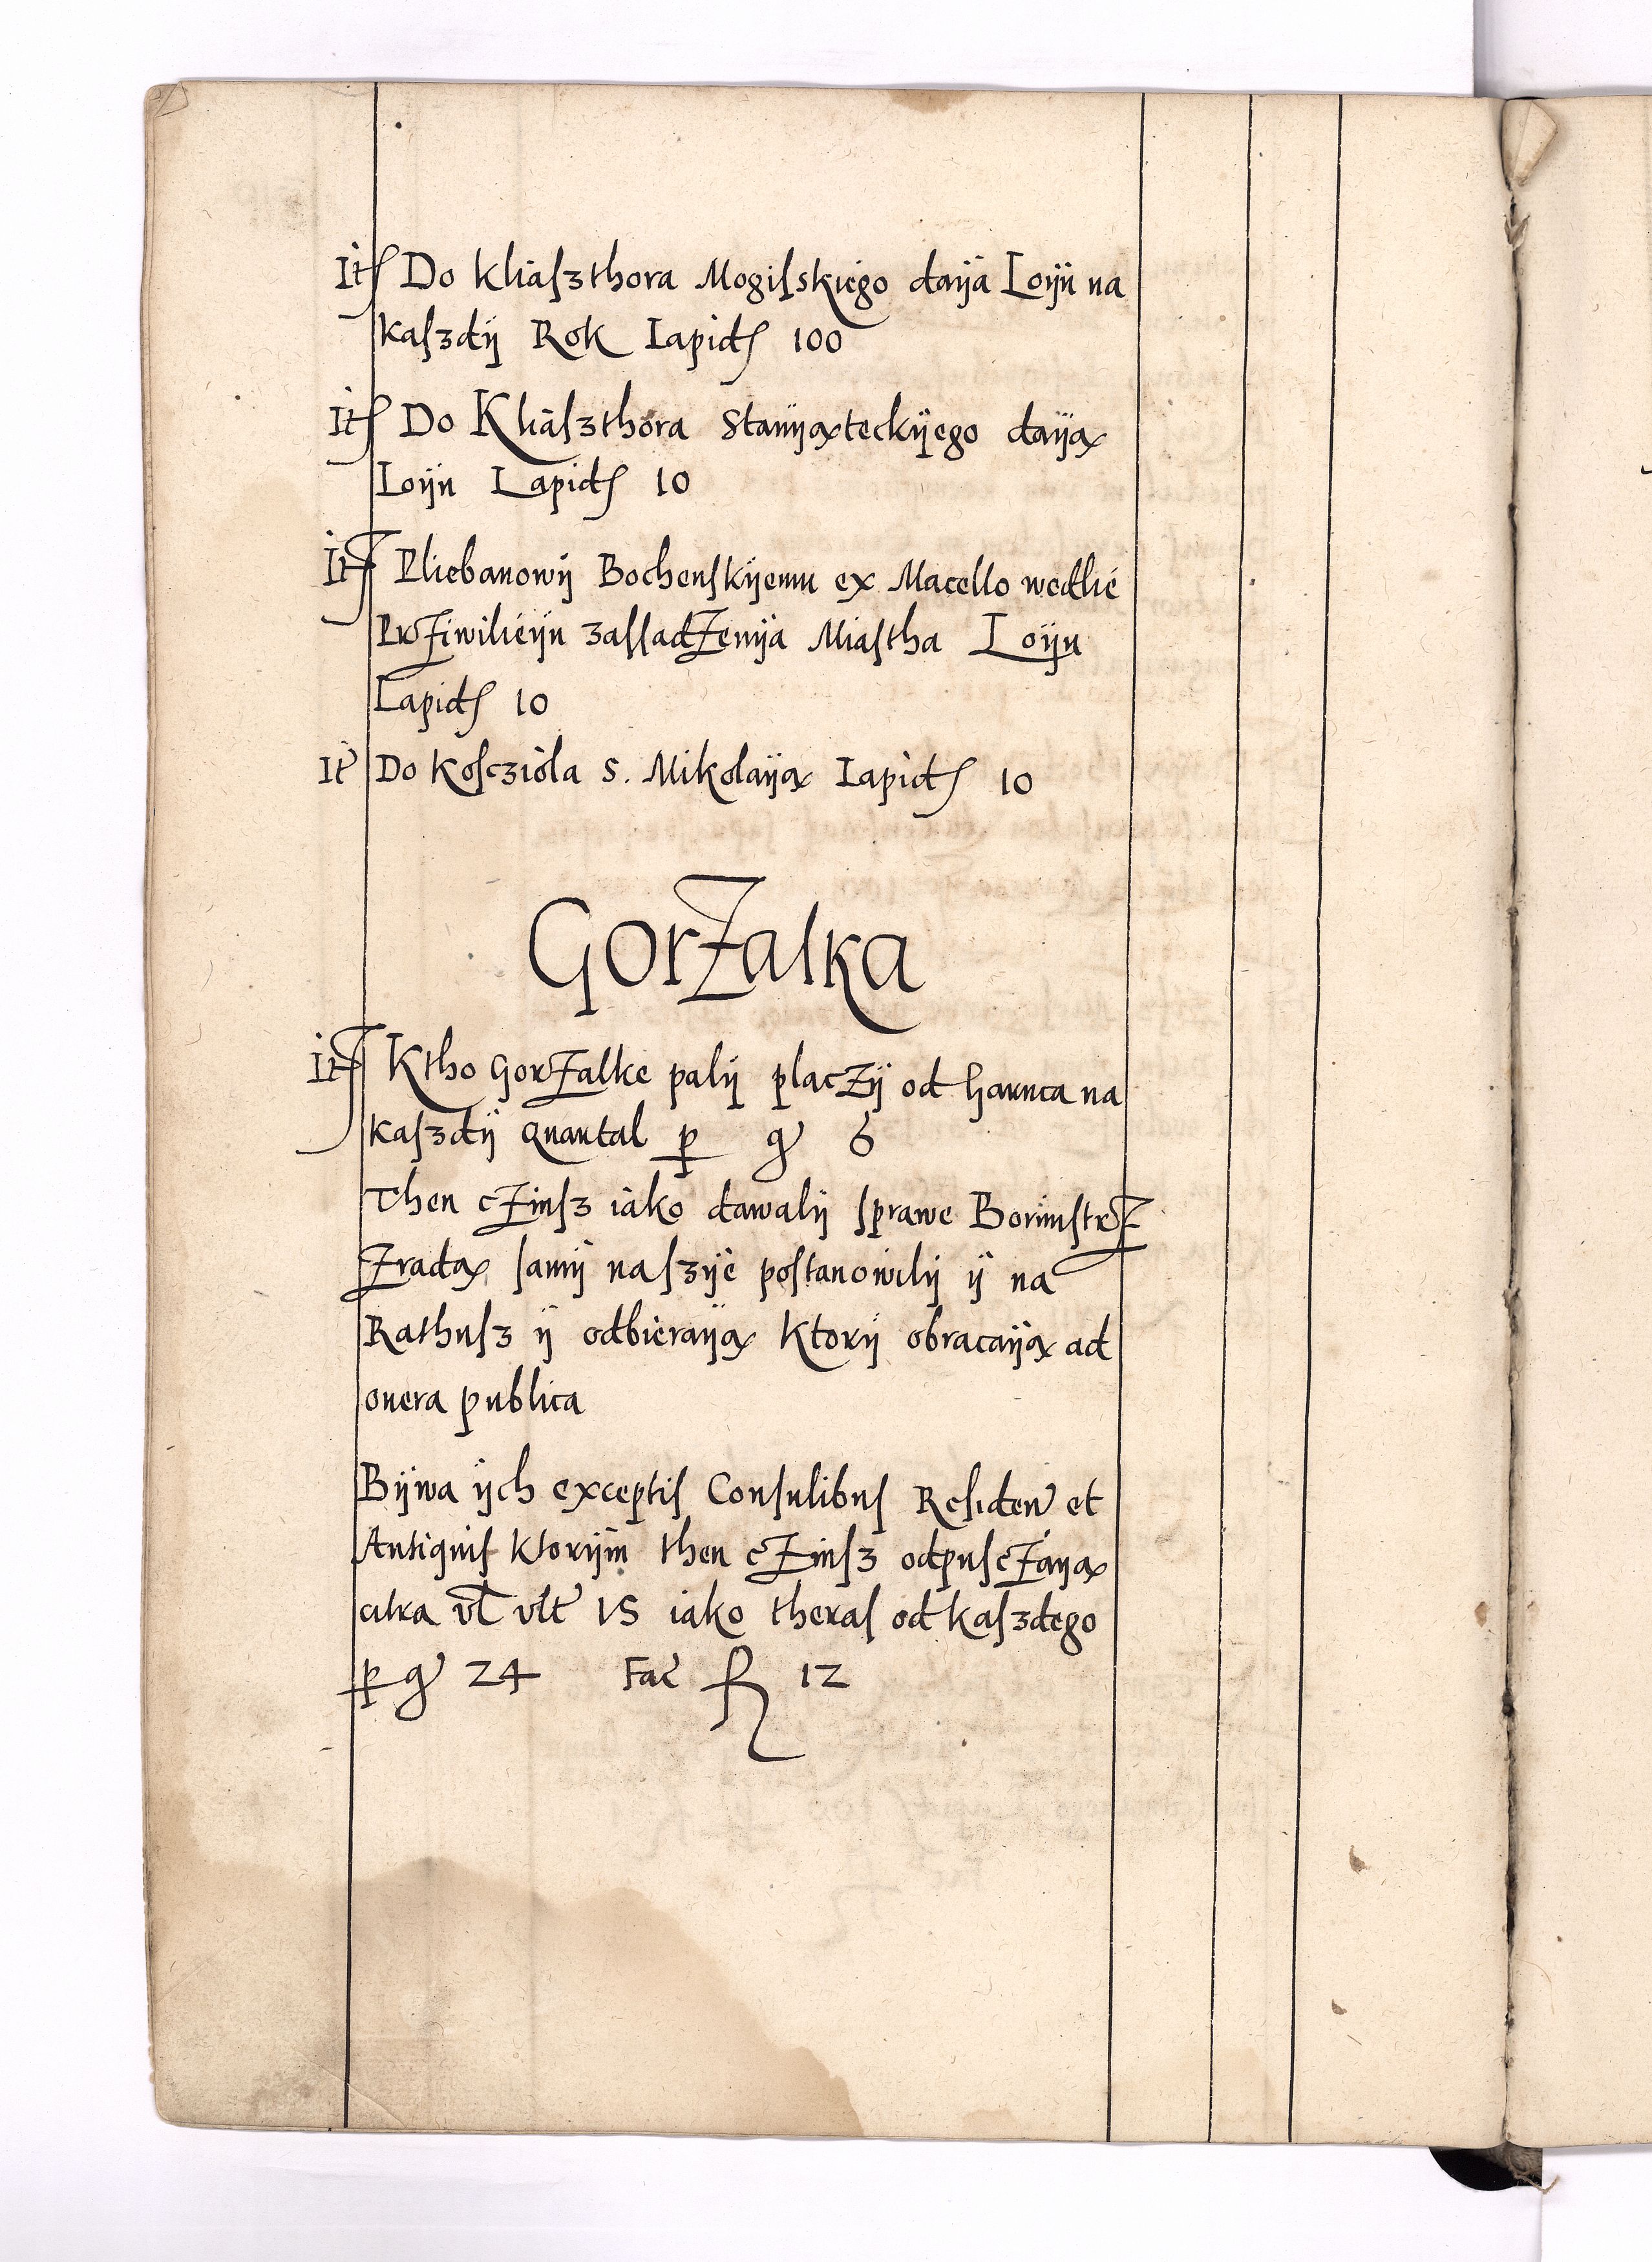 Itꝭ Do kliaſzthora Mogilskiego daÿa Loÿu na
kaſzdÿ Rok Lapidꝭ 100
Itꝭ Do Kliaſzthora Stanÿąteckÿego daÿą
Loÿu Lapidꝭ 10
Itꝭ Pliebanowÿ Bochenſkÿemu ex Macello wedlie
PrZiwilieÿu zaſſadZenÿa Miaſtha Loÿu
Lapidꝭ 10
It Do Koſczióla S. Mikolaÿą Lapidꝭ 10
GorZalka
Itꝭ Ktho GorZalke palÿ placZÿ od harnca na
kaſzdÿ Quartal ꝑ gͬ 6
Then cZinſz iako dawalÿ ſprawe BormiſtrZ
Zradą ſamÿ naſzÿe poſtanowilÿ ÿ na
Rathuſz ÿ odbieraÿą Ktorÿ obracaÿą ad
onera publica
Bÿwa ÿch exceptiſ Conſulibuſ Reſiden et
Antiquiſ Ktorÿm then cZinſz odpuſcZaÿą
citra vl vlt 15 iako theraſ od kaſzdego
ꝑ gͬ 24 Fac fl 12